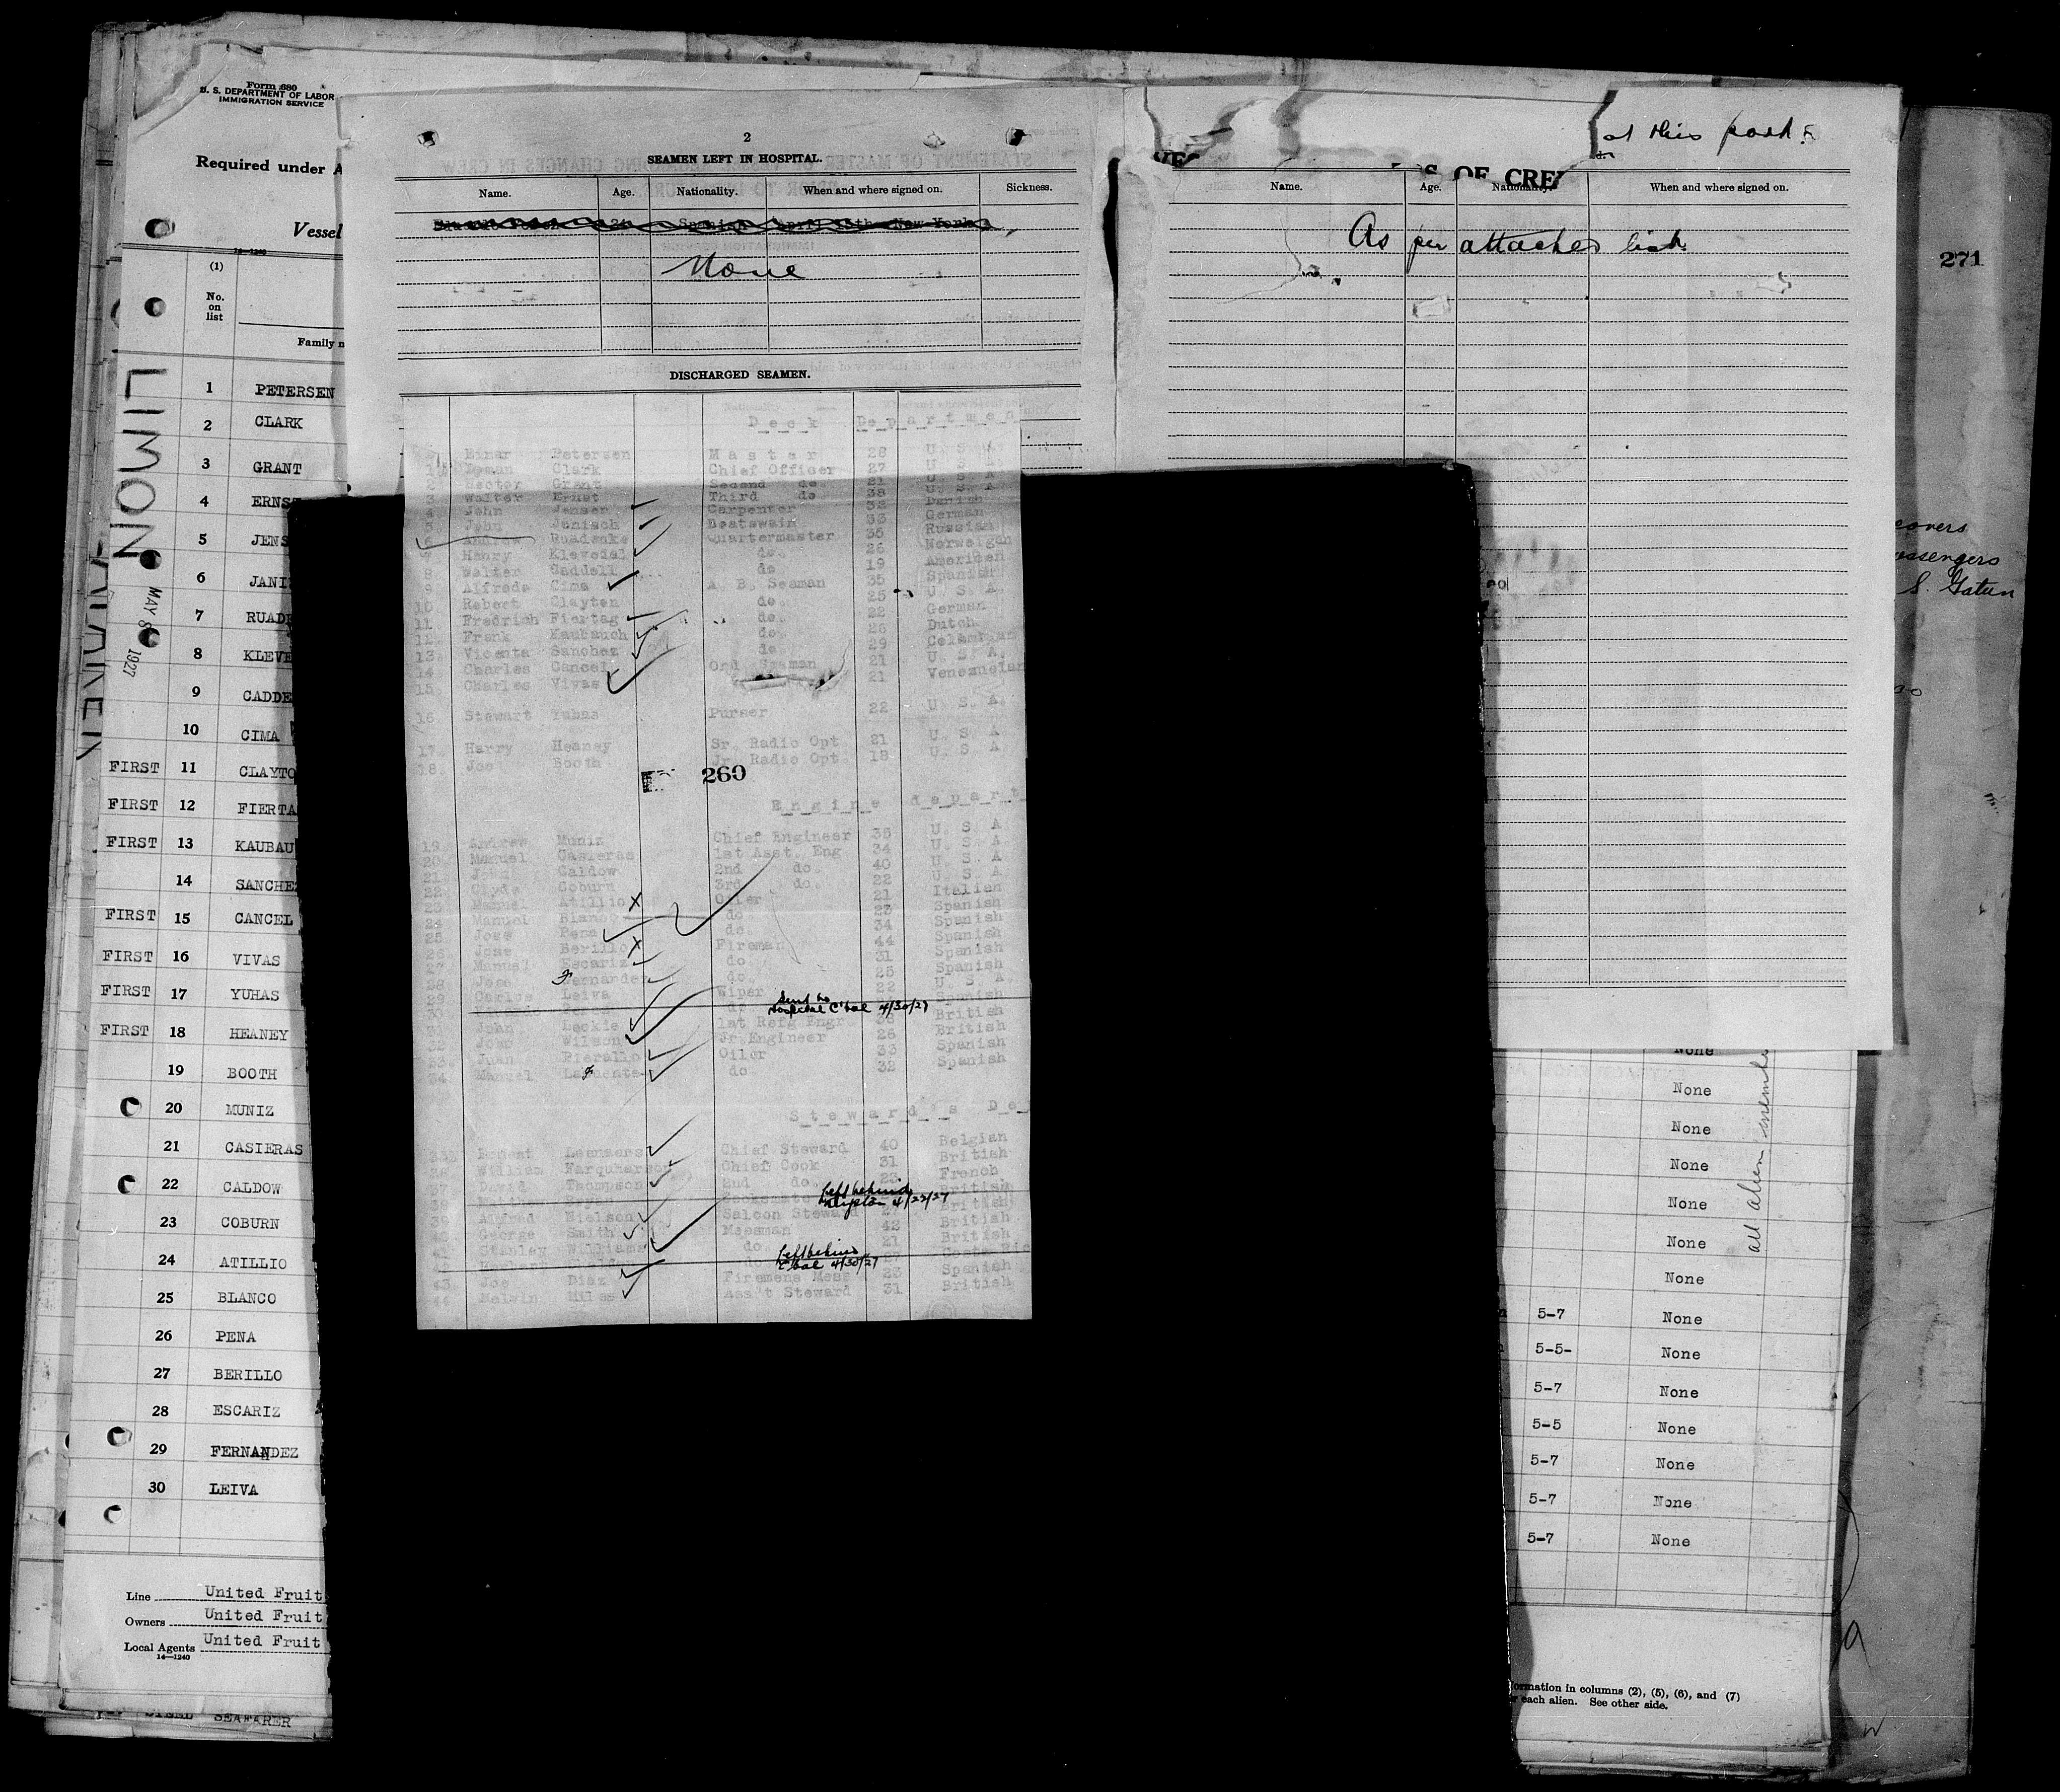 Form 680
U. S. DEPARTMENT OF LABOR
IMMIGRATION SERVICE
Required under A
Vessel
14—1240
(1)
No.
on
list
Family n
1 PETERSEN
2 CLARK
3 GRANT
4 ERNST
5 JENS
6 JANI
7 RUADE
8 KLEVE
9 CADDE
10 CIMA
FIRST 11 CLAYTO
FIRST 12 FIERTA
FIRST 13 KAUBAU
14 SANCHEZ
FIRST 15 CANCEL
FIRST 16 VIVAS
FIRST 17 YUHAS
FIRST 18 HEANEY
19 BOOTH
20 MUNIZ
21 CASIERAS
22 CALDOW
23 COBURN
24 ATILLIO
25 BLANCO
26 PENA
27 BERILLO
28 ESCARIZ
29 FERNANDEZ
30 LEIVA
Line United Fruit
Owners United Fruit
Local Agents United Fruit
14—1240
STEEL SEAFARER
LIMON
MAY 8 1927
2
SEAMEN LEFT IN HOSPITAL.
Name. Age. Nationality. When and where signed on. Sickness.
None
DISCHARGED SEAMEN.
Deck Departmen
Einar Petersen Master 28 U. S. A.
1. Clark Chief Officer 27 U. S. A
2. Hector Grant Second do 21 U. S. A
3. Walter Ernst Third do 38 U. S. A
4. John Jensen Carpenter 32 Danish
5. John Janisch Boatswain 33 German
6. Andrew Ruadenke Quartermaster 35 Russian
7. Henry Klevedal do. 26 Norweigan
8. Walter Caddell do. 19 American
9. Alfredo Cima A. B. Seaman 35 Spanish
10. Robert Clayton do. 25 U. S. A.
11. Fredrich Fiertag do. 22 German
12. Frank Kaubauch do. 28 Dutch
13. Vicente Sanchez do 29 Colombian
14. Charles Cancel Ord Seaman 21 U. S. A.
15. Charles Vivas 21 Venezuelan
16. Stewart Yuhas Purser 22 U. S. A.
17. Harry Heaney Sr. Radio Opt 21 U. S. A
18. Joe Booth Jr. Radio Opt 18 U. S. A
260
Engine depart
19. Andrew Muniz Chief Engineer 35 U. S. A
20. Manuel Casieras 1st Asst. Eng 34 U. S. A
21. John Caldow 2nd do. 40 U. S. A
22. Clyde Coburn 3rd do. 22 U. S. A
23. Manuel Atillio Oiler 21 Italian
24. Manuel Blanco do 23 Spanish
25. Jose Pena do. 34 Spanish
26. Jose Berillo Fireman 44 Spanish
27. Manuel Escariz do. 31 Spanish
28. Jose Fernandez do. 25 Spanish
29. Carlos Leiva Wiper 22 U. S. A.
30. do Spanish
Sent to
Hospital C'bal 4/30/27
31. John Leckie 1st Refg Engr 38 British
32. John Wilson Jr Engineer 26 British
33. Juan Pierallo Oiler 33 Spanish
34. Manuel Lafuente do. 32 Spanish
Steward's De
Leenaers Chief Steward 40 Belgian
36 William Farquharson Chief Cook 31 British
37 David Thompson 2nd do. 23 French
38 British
Left behind
Kingston 4/22/27
39 Alfred Nielson Saloon Steward British
40 George Smith Messman 42 British
41 Stanley Williams do 21 British
42 Herbert do 27 Costa Ric
Left behind
C'bal 4/30/27
43 Joe Diaz Firemens Mess 23 Spanish
44 Melvin Miles Ass't Steward 31 British
at this port.
S OF CRE
Name. Age. Nationality. When and where signed on.
As per attached list.
271
covers
assengers
S. Gatun
None
None
None
None
None
None
None
5-7 None
5-5- None
5-7 None
5-5 None
5-7 None
5-7 None
5-7 None
all alien membe
formation in columns (2), (5), (6), and (7)
r each alien. See other side.